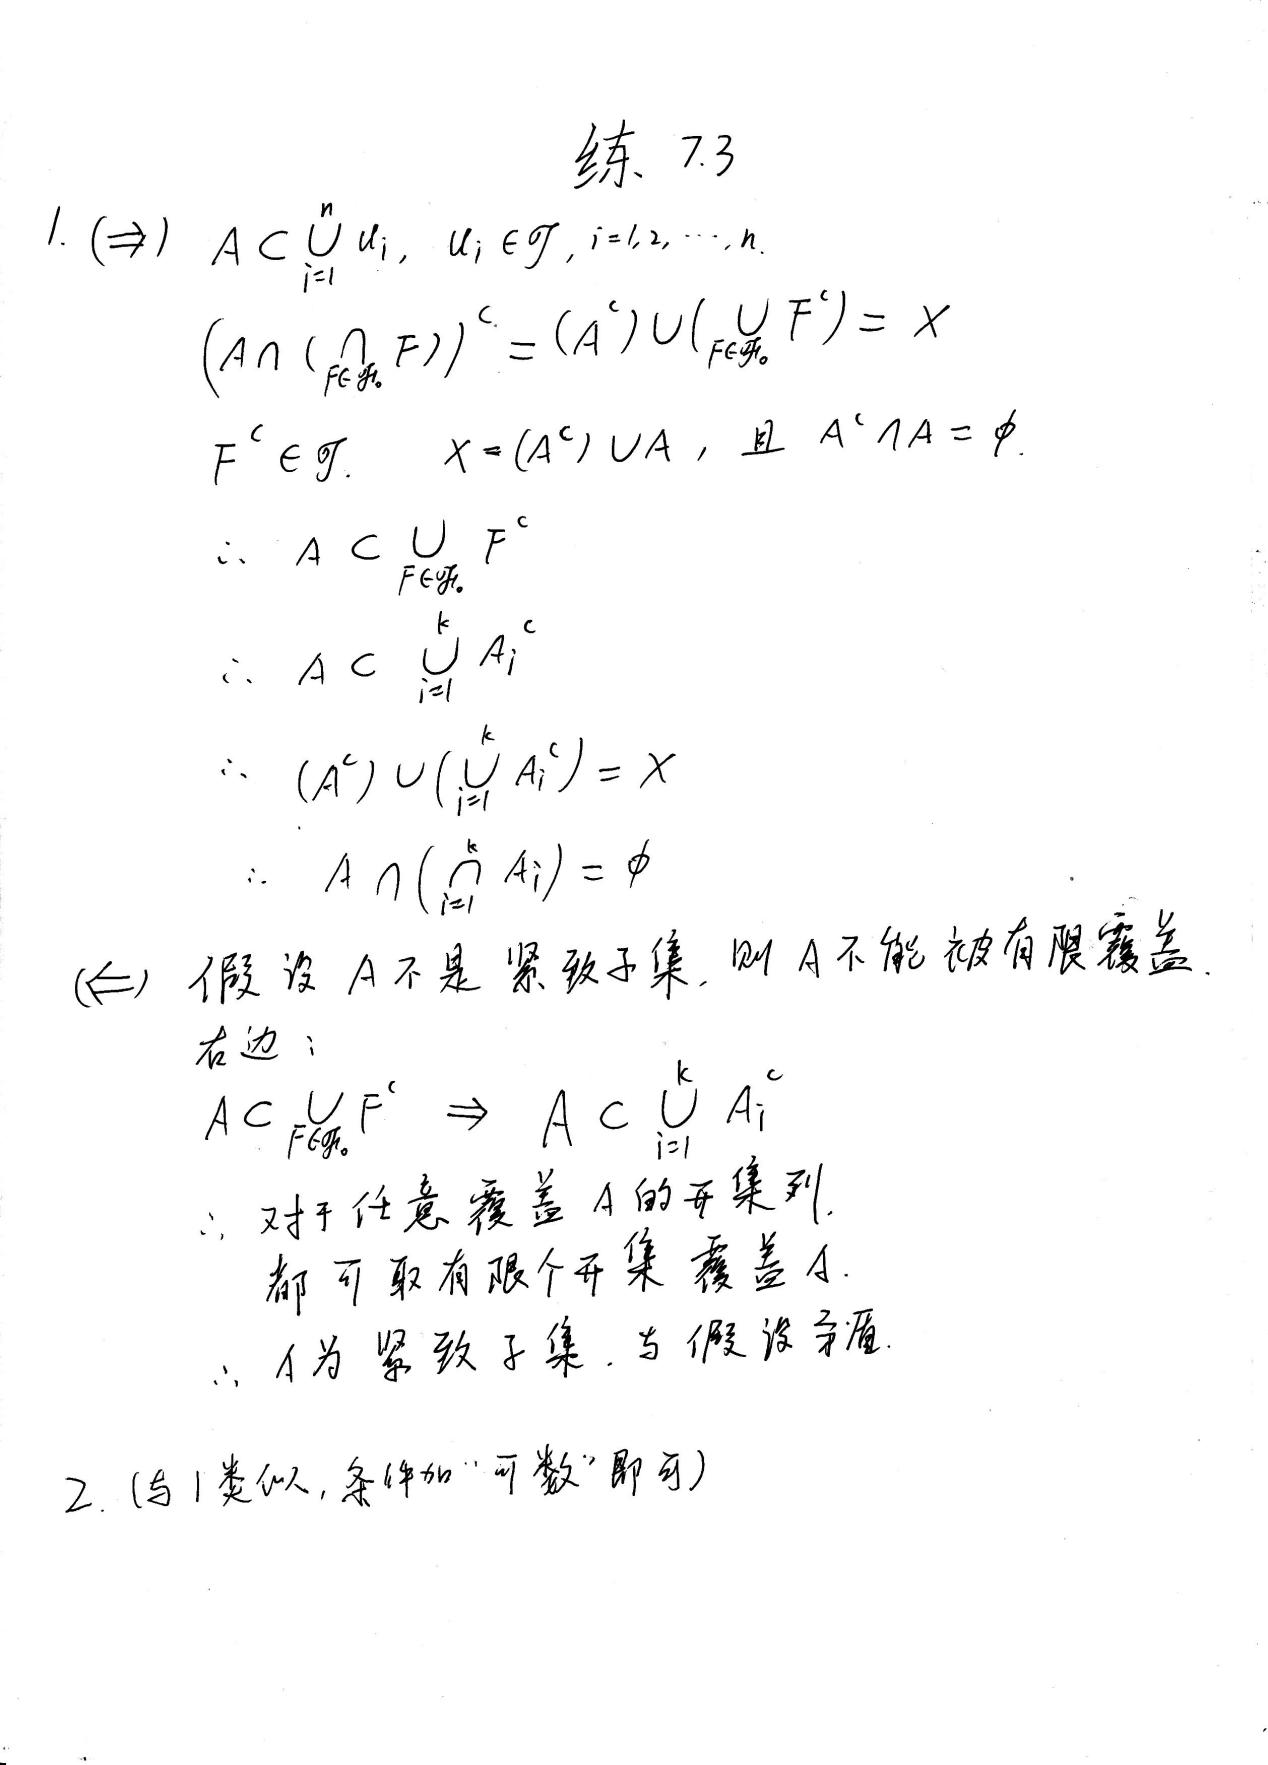 练 7.3
1. (⇒) A ⊂ ⋃_{i=1}^{n} U_i, U_i ∈ 𝒯, i=1,2,⋯,n.
(A∩(⋂_{F∈ℱ₀} F))^c = (A^c)∪(⋃_{F∈ℱ₀} F^c) = X
F^c ∈ 𝒯. X=(A^c)∪A, 且 A^c∩A=φ.
∴ A ⊂ ⋃_{F∈ℱ₀} F^c
∴ A ⊂ ⋃_{i=1}^{k} A_i^c
∴ (A^c)∪(⋃_{i=1}^{k} A_i^c) = X
∴ A∩(⋂_{i=1}^{k} A_i) = φ
(⇐) 假设 A 不是 紧致子集, 则 A 不能被有限覆盖.
右边:
A ⊂ ⋃_{F∈ℱ₀} F^c ⇒ A ⊂ ⋃_{i=1}^{k} A_i^c
∴ 对于任意覆盖 A 的开集列,
都可取有限个开集覆盖 A.
∴ A 为紧致子集. 与假设矛盾.
2. (与1类似, 条件加"可数"即可)